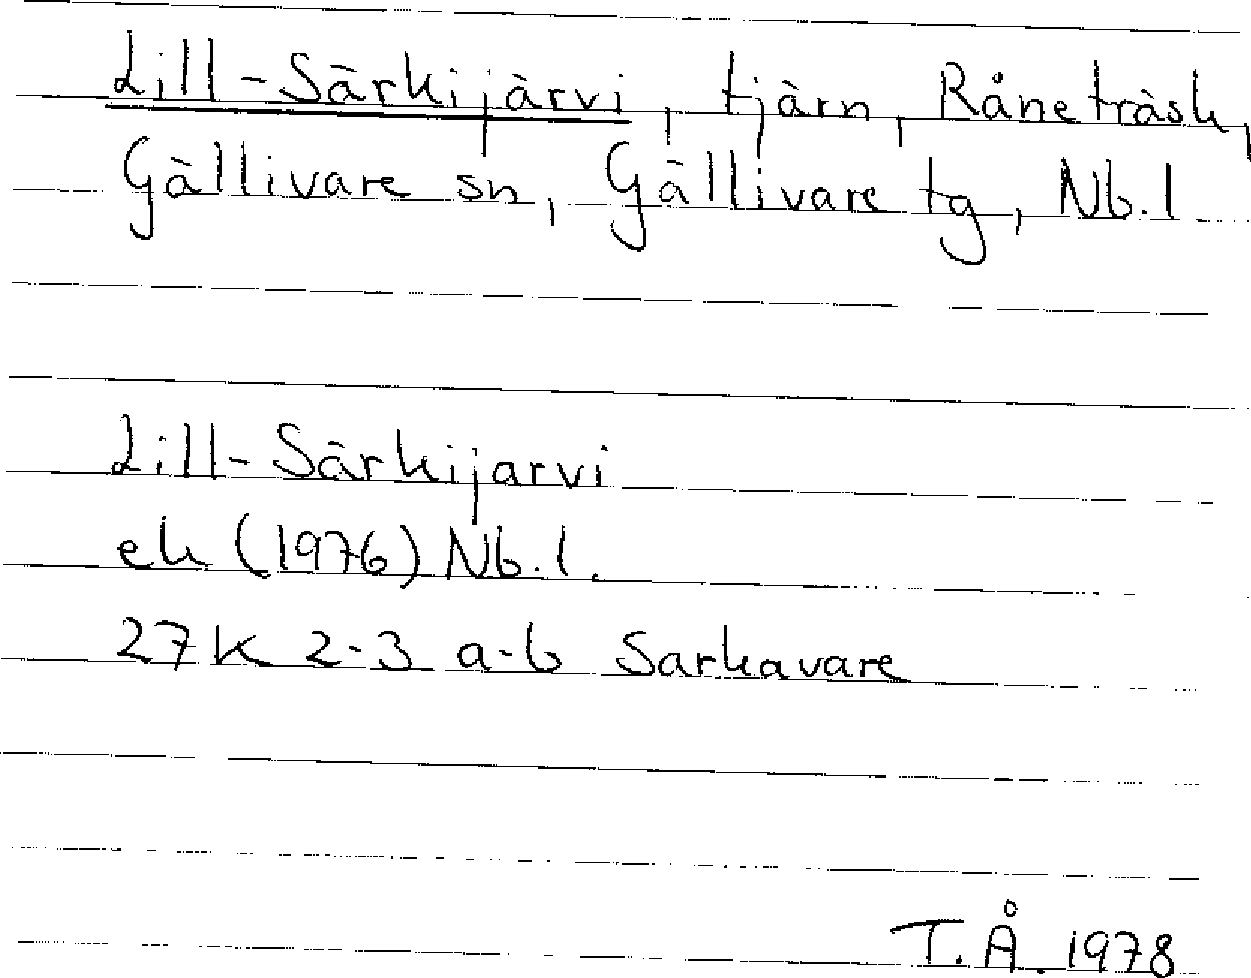 Lill-Särkijärvi, tjärn, Råneträsk,
Gällivare sn, Gällivare tg, Nb. l
Lill-Särkijarvi
ek (1976) Nb. l.
27 K 2-3 a-b Sarkavare
T. Å. 1978